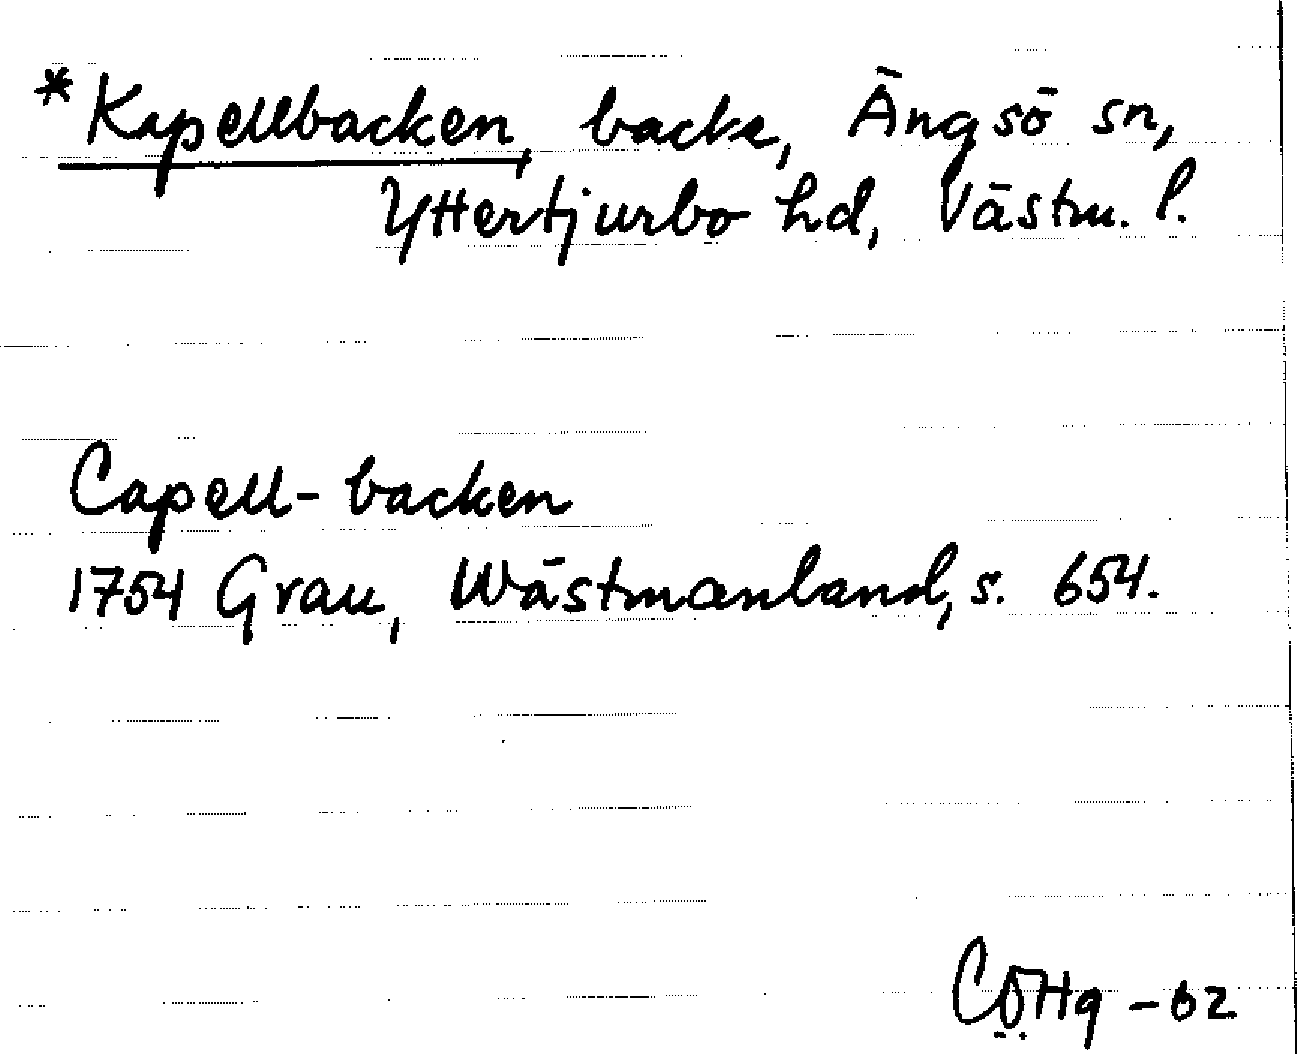 *Kapellbacken, backe, Ängsö sn,
Yttertjurbo hd, Västm. l.
Capell-backen
1754 Grau, Wästmanland, s. 654.
CÖHg -62